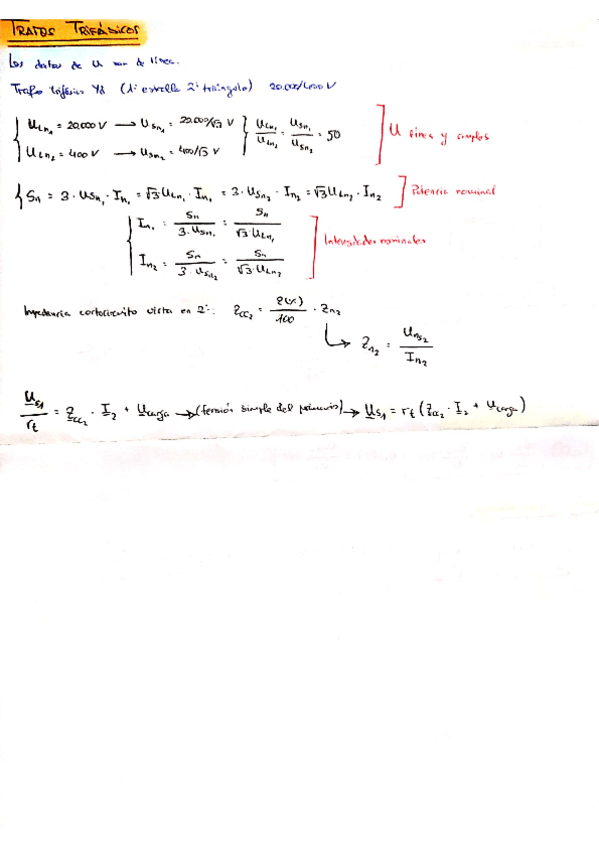 TRAFOS TRIFÁSICOS
Los datos de U son de línea.
Trafo trifásico Yd (1º estrella 2º triángulo) 20.000/400 V
U_Ln1 = 20.000 V → U_Sn1 = 20.000/√3 V
U_Ln2 = 400 V → U_Sn2 = 400/√3 V
U_Ln1/U_Ln2 = U_Sn1/U_Sn2 = 50
U línea y simples
Sn = 3 · U_Sn1 · I_n1 = √3 U_Ln1 · I_n1 = 3 · U_Sn2 · I_n2 = √3 U_Ln2 · I_n2
Potencia nominal
I_n1 = Sn/(3 · U_Sn1) = Sn/(√3 · U_Ln1)
I_n2 = Sn/(3 · U_Sn2) = Sn/(√3 · U_Ln2)
Intensidades nominales
Impedancia cortocircuito vista en 2º: Z_cc2 = Z(%)/100 · Z_n2
→ Z_n2 = U_ns2/I_n2
U_s1/r_t = Z_cc2 · I_2 + U_carga → (tensión simple del primario) → U_s1 = r_t (Z_cc2 · I_2 + U_carga)